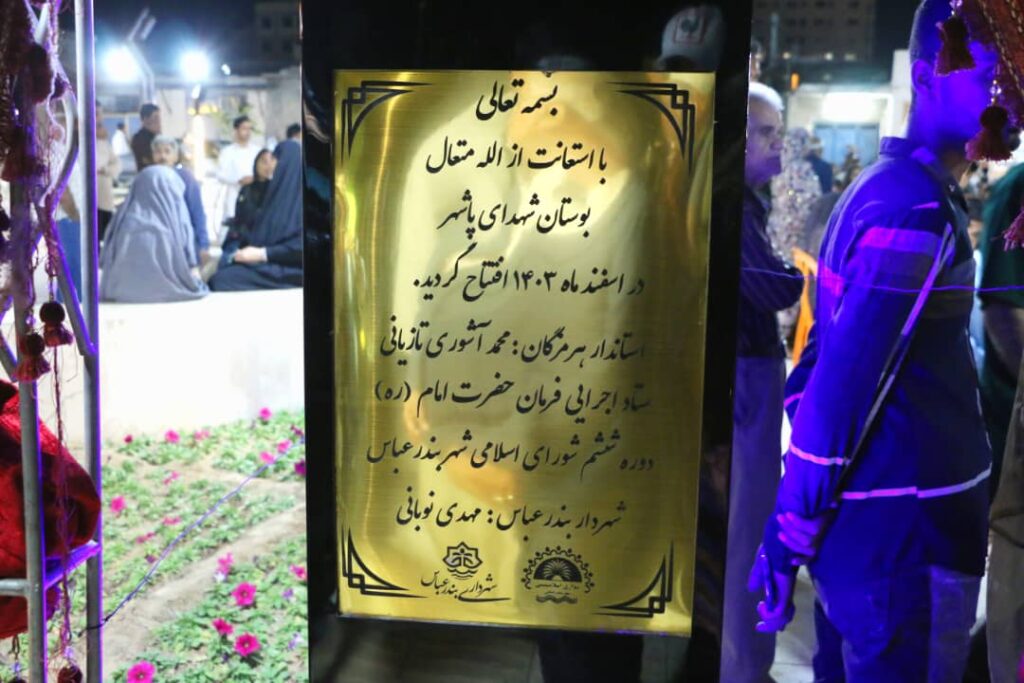 بسمه تعالی
با استعانت از الله متعال
بوستان شهدای پاشهر
در اسفند ماه ۱۴۰۳ افتتاح گردید.
استاندار هرمزگان: محمد آشوری تازیانی
ستاد اجرایی فرمان حضرت امام (ره)
دوره ششم شورای اسلامی شهر بندرعباس
شهردار بندرعباس: مهدی نوبانی
شهرداری بندرعباس